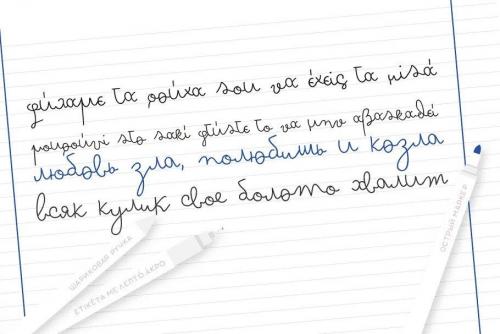 φύλαγε τα ρούχα σου να έχεις τα μισά
γουρούνι στο σακί φτύστε το να μην αβασκαθεί
любовь зла, полюбишь и козла
всяк кулик свое болото хвалит
ШАРИКОВАЯ РУЧКА
ΕΤΙΚΈΤΑ ΜΕ ΛΕΠΤΌ ΆΚΡΟ
ОСТРЫЙ МАРКЕР